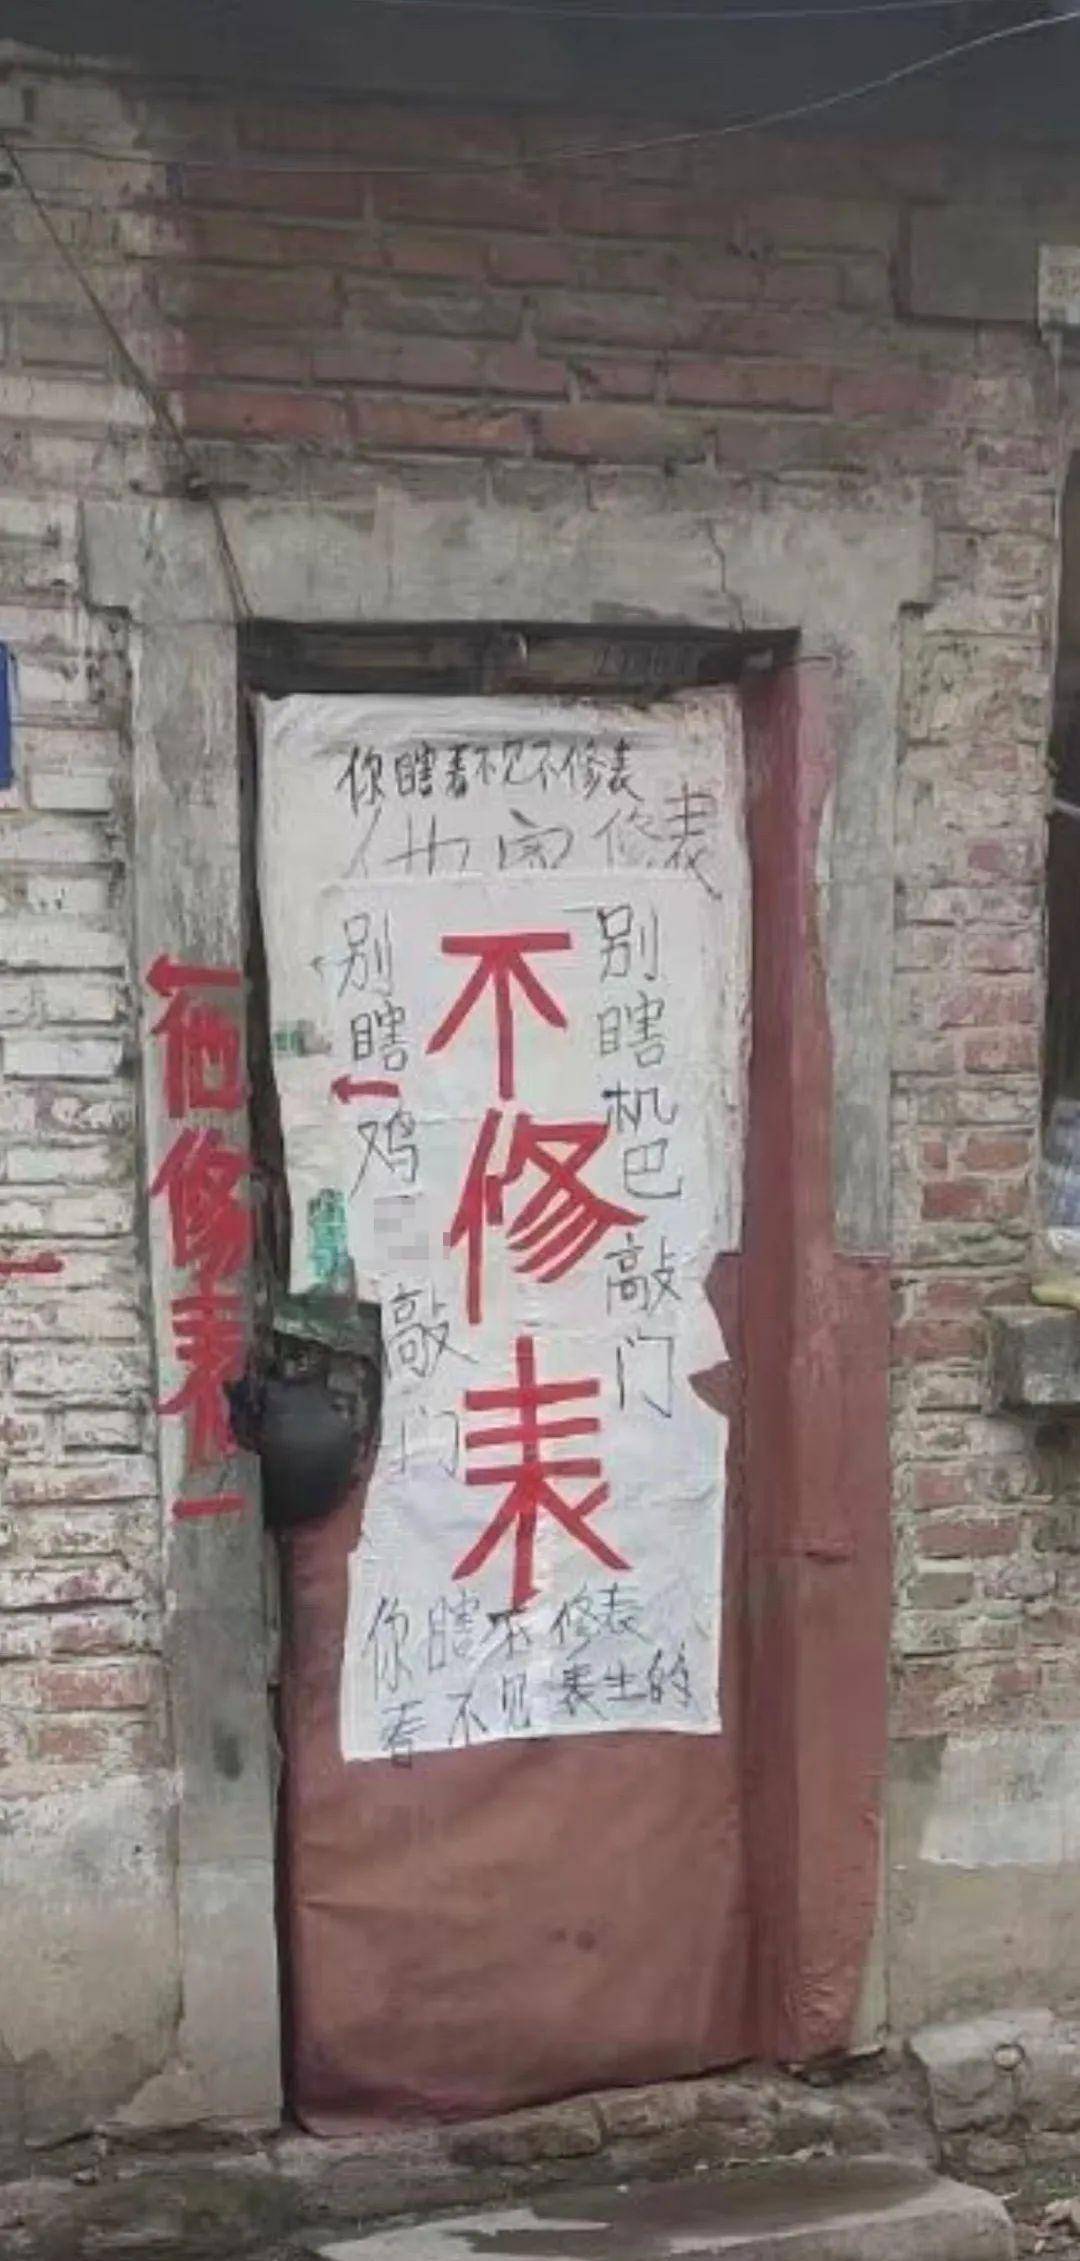 你瞎看不见不修表
他家修表
不修表
别瞎机巴敲门
别瞎鸡
敲门
你瞎不修表
看不见表生的
←他修表